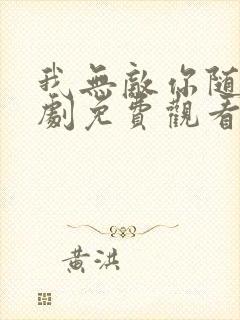 我無敵你随
劇免費觀看
黃洪